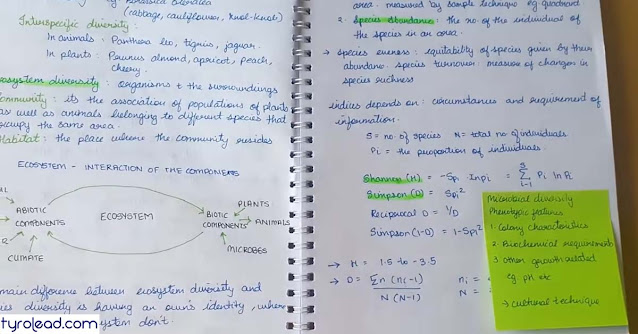 Brassica oleracea
(cabbage, cauliflower, knol-knol)
Interspecific diversity:
In animals: Panthera leo, tigris, jaguar.
In plants: Prunus almond, apricot, peach,
cherry.
ecosystem diversity: organisms & the surroundings
ommunity: its the association of populations of plants
as well as animals belonging to different species that
occupy the same area.
Habitat: the place where the community resides
ECOSYSTEM - INTERACTION OF THE COMPONENTS
ABIOTIC
COMPONENTS
ECOSYSTEM
BIOTIC
COMPONENTS
PLANTS
ANIMALS
MICROBES
CLIMATE
main difference between ecosystem diversity and
ies diversity is having an own's identity, where
ystem don't.
tyrolead.com
area. measured by sample technique eg quadrand
2. Species abundance: the no of the individual of
the species in an area.
→ species eveness: equitability of species given by their
abundance. species turnover: measure of changes in
species richness
indices depends on: circumstances and requirement of
information.
S = no of species N = total no of individuals.
Pi = the proportion of individuals.
Shannon (H) = -Spi . lnpi = S Σ i=1 Pi ln Pi
Simpson (D) = Spi²
Reciprocal D = 1/D
Simpson (1-D) = 1-Spi²
→ H = 1.5 to -3.5
→ D = Σn (ni-1) / N (N-1)
ni =
N =
Microbial diversity
Phenotypic features
1. Colony characteristics
2. Biochemical requirements
3. Other growth related
eg pH etc
→ cultural technique